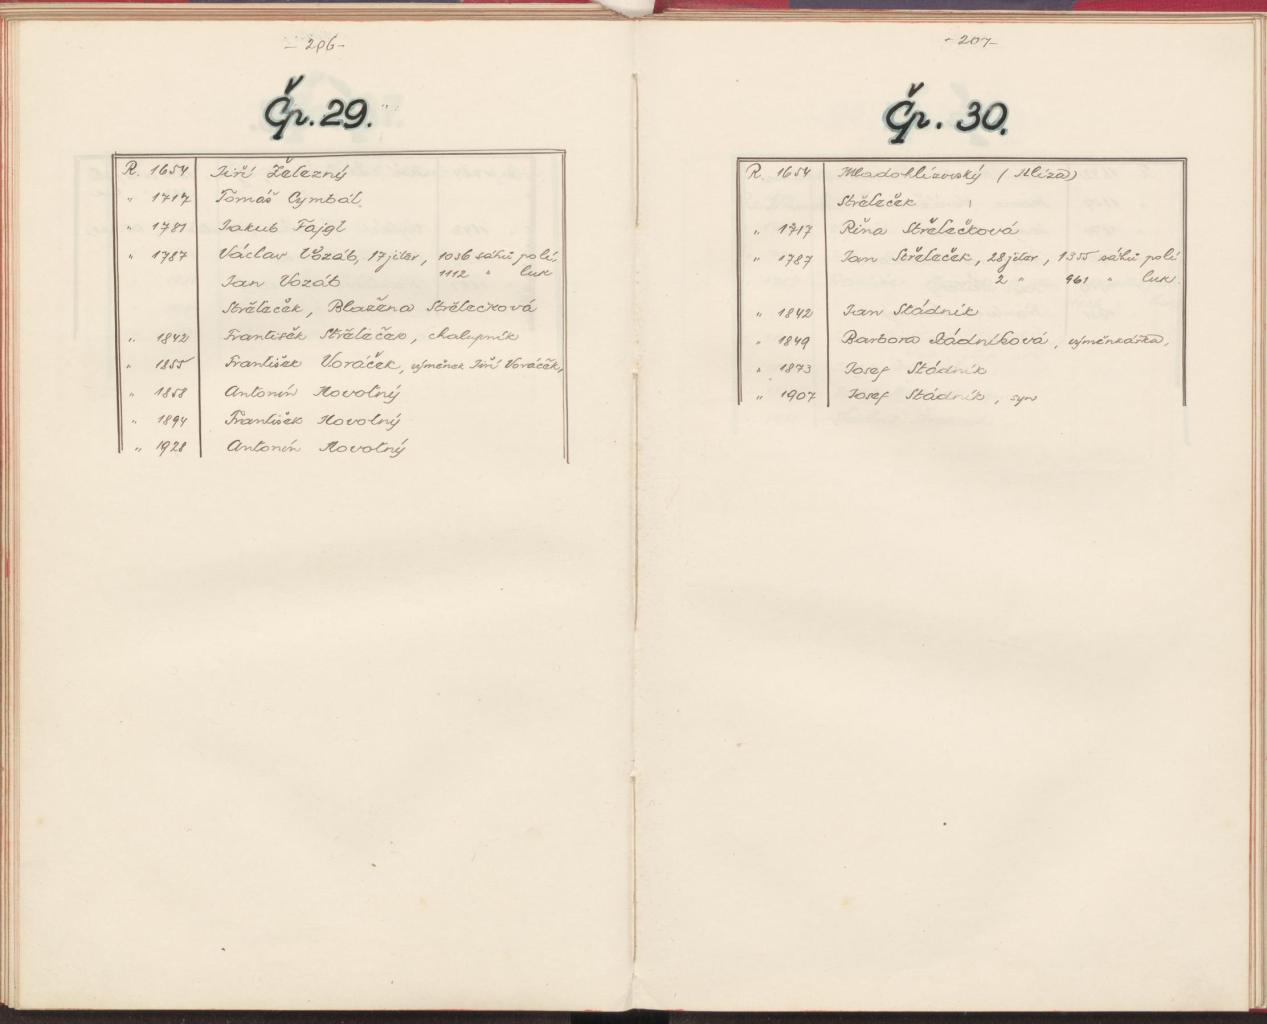 - 206 -
Čp. 29.
R. 1654 Jiří Železný
" 1717 Tomáš Cymbál.
" 1781 Jakub Fajgl
" 1787 Václav Vozáb, 17 jiter, 1056 sáhů polí,
1112 " luk
Jan Vozáb
Střeleček, Blažena Střelečková
" 1842 František Střeleček, chalupník
" 1855 František Voráček, výměnek Jiří Voráček,
" 1858 Antonín Novotný
" 1894 František Novotný
" 1928 Antonín Novotný
- 207 -
Čp. 30.
R. 1654 Mladohlízovský (Hlíza)
Střeleček
" 1717 Řina Střelečková
" 1787 Jan Střeleček, 28 jiter, 1355 sáhů polí
2 " 961 " luk.
" 1842 Jan Stádník
" 1849 Barbora Stádníková, výměnkářka,
" 1873 Josef Stádník
" 1907 Josef Stádník, syn